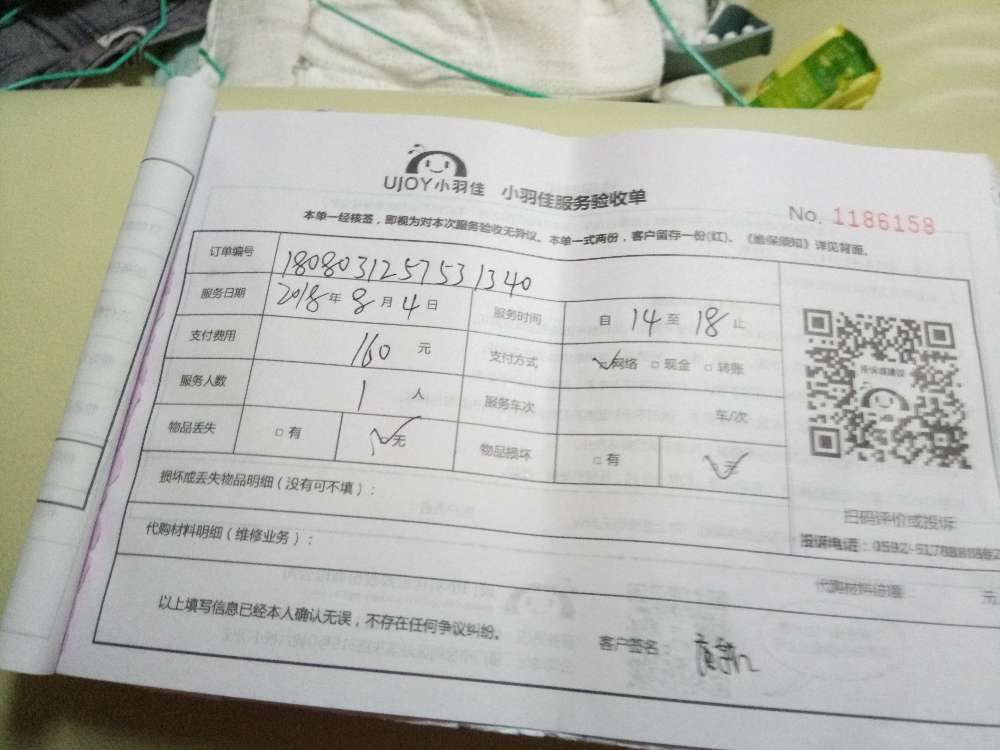 UJOY小羽佳 小羽佳服务验收单
No. 1186158
本单一经核签，即视为对本次服务验收无异议。本单一式两份，客户留存一份(红)。《维保须知》详见背面。
订单编号 1808031257531340
服务日期 2018年8月4日 服务时间 自14至18止
支付费用 160元 支付方式 网络 □现金 □转账
服务人数 1人 服务车次 车/次
物品丢失 □有 无 物品损坏 □有 无
投诉或建议
扫码评价或投诉
损坏或丢失物品明细（没有可不填）：
投诉电话：0592-
代购材料明细（维修业务）：
元
以上填写信息已经本人确认无误，不存在任何争议纠纷。
客户签名：